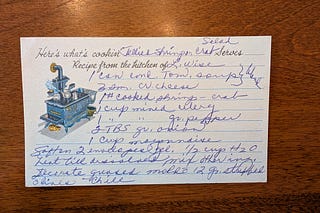 Salad
Here's what's cookin' Jellied Shrimp-Crab Serves
Recipe from the kitchen of L. Wise
1 can conc. Tom. soup
2 sm. cr. cheese
1# cooked shrimp - crab
1 cup minced celery
1 " " gr. pepper
2 TBS gr. onion
1 cup mayonnaise
Soften 2 envelopes gel. 1/2 cup H2O
heat till dissolved mix other ing.
Decorate greased mold 12 gr. stuffed
olives - Chill